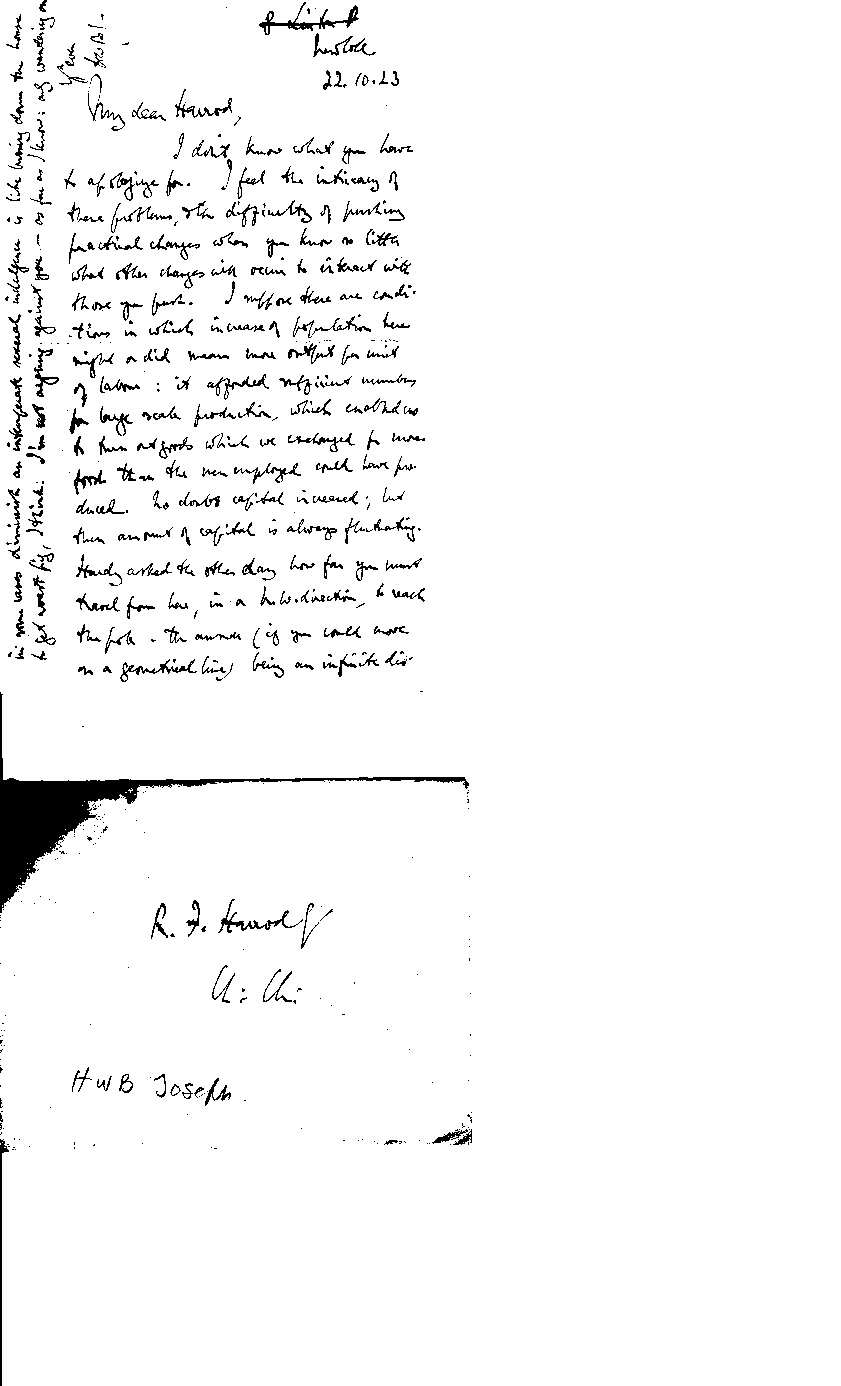 New Coll.
22.10.23
My dear Harrod,
I don't know what you have
to apologize for. I feel the intricacy of
these problems, & the difficulty of pushing
practical changes when you know so little
what other changes will occur to interact with
those you push. I suppose there are condi-
tions in which increase of population here
might or did mean more output per unit
of labour : it afforded sufficient numbers
for large scale production, which enabled us
to turn out goods which we exchanged for more
food than the men employed could have pro-
duced. No doubt capital increased; but
then amount of capital is always fluctuating.
Hardy asked the other day how far you must
travel from here, in a N.W. direction, to reach
the pole - the answer (if you could move
on a geometrical line) being an infinite dis-
in some cases diminish an intemperate sexual indulgence is like burning down the house
to get roast pig, I think. I'm not arguing against you — as far as I know: only wondering on
R. F. Harrod
Ch: Ch:
HWB Joseph